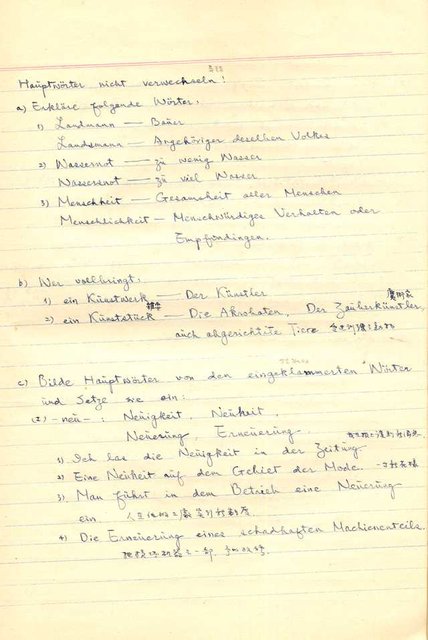 Hauptwörter nicht verwechseln!
a) Erkläre folgende Wörter:
1) Landmann — Bauer
Landsmann — Angehöriger desselben Volkes
2) Wassernot — zu wenig Wasser
Wassersnot — zu viel Wasser
3) Menschheit — Gesamtheit aller Menschen
Menschlichkeit — Menschwürdiges Verhalten oder
Empfindingen.
b) Wer vollbringt:
1) ein Künstwerk — Der Künstler
2) ein Künststück — Die Akrobaten, Der Zauberkünstler,
auch abgerichtete Tiere
c) Bilde Hauptwörter von den eingeklammerten Wörter
und setze sie ein:
-neu-: Neuigkeit, Neuheit,
Neuerung, Erneuerung.
1) Ich las die Neuigkeit in der Zeitung
2) Eine Neuheit auf dem Gebiet der Mode.
3) Man führt in dem Betrieb eine Neuerung
ein.
4) Die Erneuerung eines schadhaften Machienenteils.